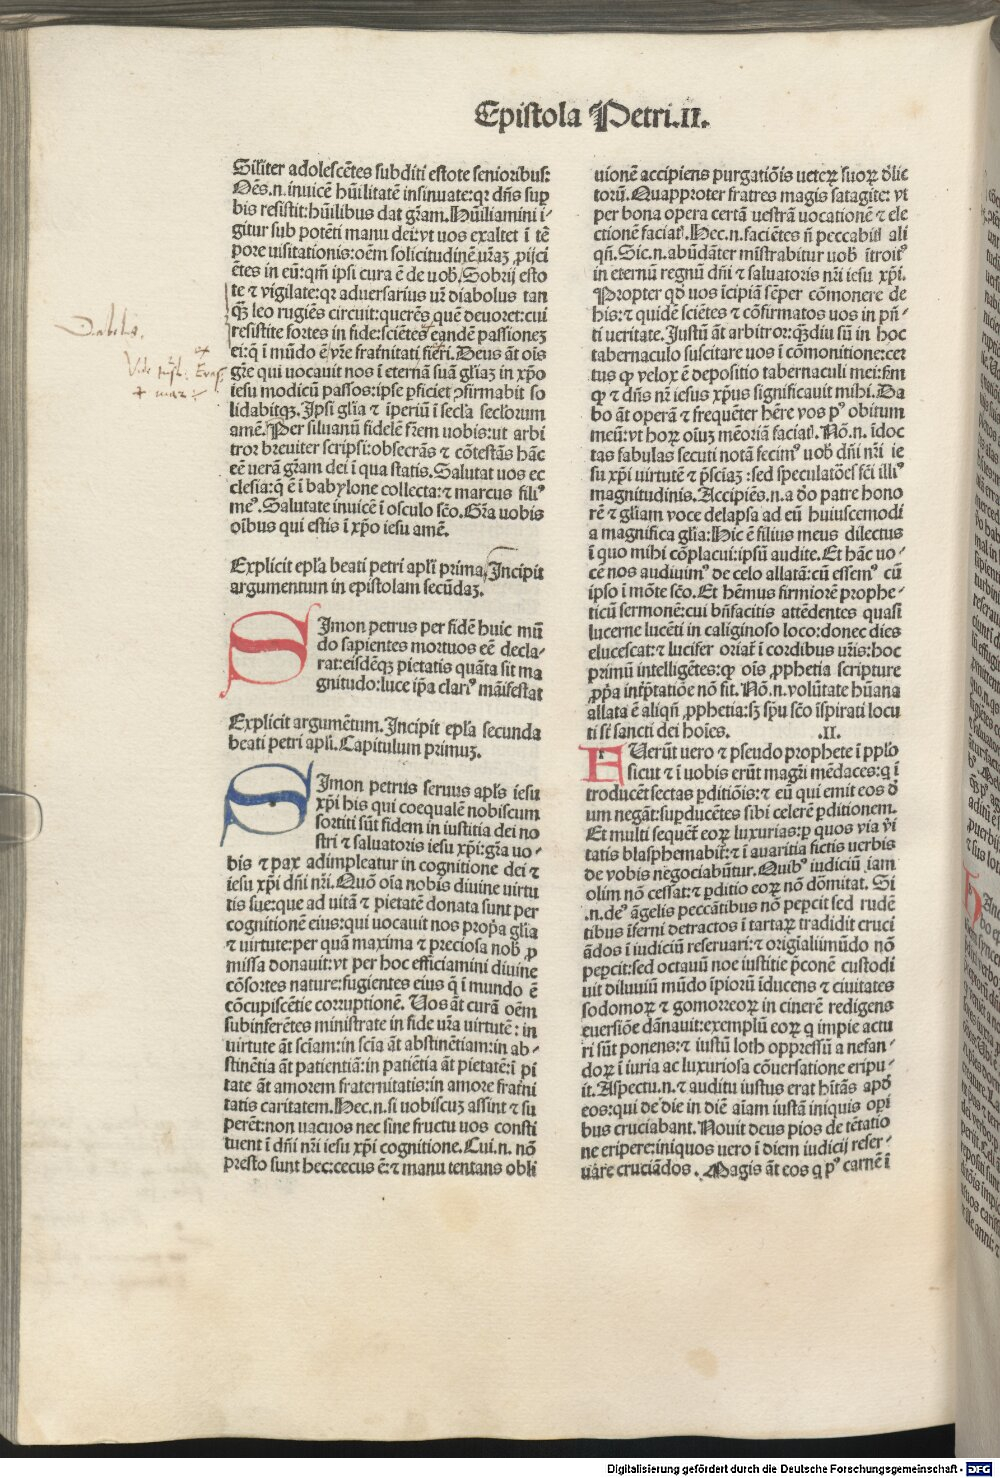 Epistola Petri.II.
Silit̃er adolescẽtes subditi estote senioribus:
Oẽs.n.inuicẽ hũilitatẽ insinuate:qꝛ dñs sup̱
bis resistit:hũilibus dat gr̃am.Hũiliamini i-
gitur sub potẽti manu dei:vt uos exaltet ĩ tẽ
pore uisitationis:oẽm solicitudinẽ ur̃aꝫ ꝓijci
ẽtes in eũ:qm̃ ipsi cura ẽ de uob̃.Sobrij esto
te ⁊ vigilate:qꝛ aduersarius ur̃ diabolus tan
q̃ꝫ leo rugiẽs circuit:querẽs quẽ deuoret:cui
resistite fortes in fide:sciẽtes eandẽ passioneꝫ
ei:q̃ ĩ mũdo ẽ vr̃e frat̃nitati fieri.Deus ãt oĩs
gr̃e qui uocauit nos ĩ eternã suã gl̃iaꝫ in xp̃o
iesu modicũ passos:ipse ꝑficiet ꝯfirmabit so
lidabitqꝫ.Ipsi gl̃ia ⁊ iperiũ ĩ secl̃a seclorum
amẽ.Per siluanũ fidelẽ fr̃em uobis:ut arbi
tror breuiter scripsi:obsecrãs ⁊ cõtestãs hãc
eẽ uerã gr̃am dei ĩ qua statis.Salutat uos ec
clesia:q̃ ẽ ĩ babylone collecta:⁊ marcus filiꝰ
meꝰ.Salutate inuicẽ ĩ osculo sc̃o.Gr̃a uobis
oĩbus qui estis ĩ xp̃o iesu amẽ.
Explicit epl̃a beati petri apl̃i prima.Incipit
argumentum in epistolam secũdaꝫ.
SImon petrus per fidẽ huic mũ
do sapientes mortuos eẽ decla-
rat:eisdẽqꝫ pietatis quãta sit ma
gnitudo:luce ip̃a clariꝰ mãifestat
Explicit argumẽtum.Incipit epl̃a secunda
beati petri apl̃i.Capitulum primuꝫ.
SImon petrus seruus apl̃s iesu
xp̃i his qui coequalẽ nobiscum
sortiti sũt fidem in iustitia dei no
stri ⁊ saluatoris iesu xp̃i:gr̃a uo-
bis ⁊ pax adimpleatur in cognitione dei ⁊
iesu xp̃i dñi nr̃i.Quõ oĩa nobis diuine virtu
tis sue:que ad uitã ⁊ pietatẽ donata sunt per
cognitionẽ eius:qui uocauit nos prop̃a gl̃ia
⁊ virtute:per quã maxima ⁊ preciosa nob̃ ꝓ
missa donauit:vt per hoc efficiamini diuine
cõsortes nature:fugientes eius q̃ ĩ mundo ẽ
cõcupiscẽtie corruptionẽ. Uos ãt curã oẽm
subinferẽtes ministrate in fide ur̃a virtutẽ: in
uirtute ãt sc̃iam:in sc̃ia ãt abstinẽtiam:in ab-
stinẽtia ãt patientiã:in patiẽtia ãt pietatẽ:ĩ pi
tate ãt amorem fraternitatis:in amore frat̃ni
tatis caritatem.Hec.n.si uobiscuꝫ assint ⁊ su
perẽt:non uacuos nec sine fructu uos consti
tuent ĩ dñi nr̃i iesu xp̃i cognitione.Cui.n. nõ
presto sunt hec:cecus ẽ:⁊ manu tentans obli
uionẽ accipiens purgatiõis ueteꝝ suoꝝ d̃lic
torũ.Quapropter fratres magis satagite: vt
per bona opera certã uestrã uocationẽ ⁊ ele
ctionẽ faciat̃.Hec.n.faciẽtes ñ peccabit̃ ali
qñ.Sic.n.abũdãter mĩstrabitur uob̃ ĩtroit̃ꝰ
in eternũ regnũ dñi ⁊ saluatoris nr̃i iesu xp̃i.
Propter qd̃ uos ĩcipiã sẽper cõmonere de
his:⁊ quidẽ sciẽtes ⁊ cõfirmatos uos in pñ-
ti veritate.Justũ ãt arbitror:qꝫdiu sũ in hoc
tabernaculo suscitare uos ĩ cõmonitione:cer
tus ꝙ velox ẽ depositio tabernaculi mei:sm̃
ꝙ ⁊ dñs nr̃ iesus xp̃us significauit mihi.Da
bo ãt operã ⁊ frequẽter hẽre vos pꝰ obitum
meũ:vt hoꝝ oĩuꝫ mẽoriã faciat̃.Nõ.n.ĩdoc
tas fabulas secuti notã fecimꝰ uob̃ dñi nr̃i ie
su xp̃i virtutẽ ⁊ p̃sc̃iaꝫ:sed speculatões fc̃i illiꝰ
magnitudinis.Accipiẽs.n.a d̃o patre hono
rẽ ⁊ gl̃iam voce delapsa ad eũ huiuscemodi
a magnifica gl̃ia:Hic ẽ filius meus dilectus
ĩ quo mihi cõplacui:ipsũ audite.Et hãc uo-
cẽ nos audiuimꝰ de celo allatã:cũ essemꝰ cũ
ipso ĩ mõte sc̃o.Et hẽmus firmiorẽ prophe-
ticũ sermonẽ:cui bñfacitis attẽdentes quasi
lucerne lucẽti in caliginoso loco:donec dies
elucescat:⁊ lucifer oriat̃ ĩ cordibus ur̃is:hoc
primũ intelligẽtes:ꝙ oĩs ꝓphetia scripture
ꝓp̃a int̃p̃tatiõe nõ fit.Nõ.n.volũtate hũana
allata ẽ aliqñ ꝓphetia:sꝫ sp̃u sc̃o ĩspirati locu
ti st̃ sancti dei hoĩes. .II.
FUerũt uero ⁊ pseudo prophete ĩ pplõ
sicut ⁊ ĩ uobis erũt magr̃i mẽdaces:q̃ ĩ
troducẽt sectas ꝑditiõis:⁊ eũ qui emit eos d̃
um negãt:suꝑducẽtes sibi celerẽ ꝑditionem.
Et multi sequẽt̃ eoꝝ luxurias:ꝑ quos via v̾i
tatis blasphemabit̃:⁊ ĩ auaritia fictis uerbis
de vobis negociabũtur.Quibꝰ iudiciũ iam
olim nõ cessat:⁊ ꝑditio eoꝝ nõ dõmitat. Si
.n.deꝰ ãgelis peccãtibus nõ peꝑcit sed rudẽ
tibus ĩferni detractos ĩ tartaꝝ tradidit cruci
ãdos ĩ iudiciũ reseruari:⁊ origĩali mũdo nõ
peꝑcit:sed octauũ noe iustitie p̃conẽ custodi
uit diluuiũ mũdo ĩpiorũ ĩducens ⁊ ciuitates
sodomoꝝ ⁊ gomorreoꝝ in cinerẽ redigens
euersiõe dãnauit:exemplũ eoꝝ q̃ impie actu
ri sũt ponens:⁊ iustũ loth oppressũ a nefan-
doꝝ ĩ iuria ac luxuriosa cõuersatione eripu-
it.Aspectu.n.⁊ auditu iustus erat hĩtãs apd̃
eos:qui de die in diẽ aĩam iustã iniquis opi
bus cruciabant.Nouit deus pios de tẽtatio
ne eripere:iniquos uero ĩ diem iudicij reser-
uare cruciãdos. Magis ãt eos q̃ pꝰ carnẽ ĩ
Digitalisierung gefördert durch die Deutsche Forschungsgemeinschaft - DFG